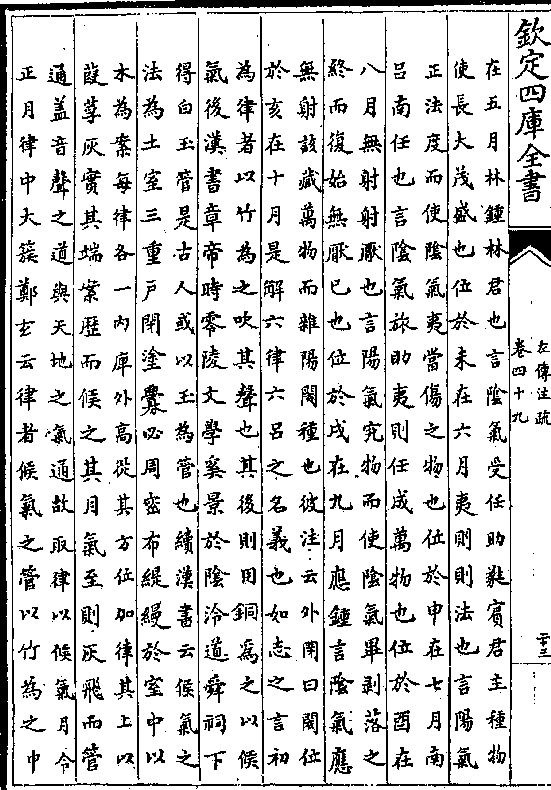 欽定四庫全書
左傳注疏
卷四十九
二十三
在五月林鍾林君也言陰氣受任助蕤賓君主種物
使長大茂盛也位於未在六月夷則則法也言陽氣
正法度而使陰氣夷當傷之物也位於申在七月南
吕南任也言陰氣旅助夷則任成萬物也位於酉在
八月無射射厭也言陽氣究物而使陰氣畢剥落之
終而復始無厭已也位於戌在九月應鍾言陰氣應
無射該藏萬物而雜陽閡種也彼注云外閉曰閡位
於亥在十月是解六律六吕之名義也如志之言初
為律者以竹為之吹其聲也其後則用銅為之以候
氣後漢書章帝時零陵文學奚景於隂泠道舜祠下
得白玉管是古人或以玉為管也續漢書云候氣之
法為土室三重戸閉塗釁必周宻布緹縵於室中以
木為案每律各一内庳外高從其方位加律其上以
葭莩灰實其端案歴而候之其月氣至則灰飛而管
通盖音聲之道與天地之氣通故取律以候氣月令
正月律中大簇鄭𤣥云律者候氣之管以竹為之中